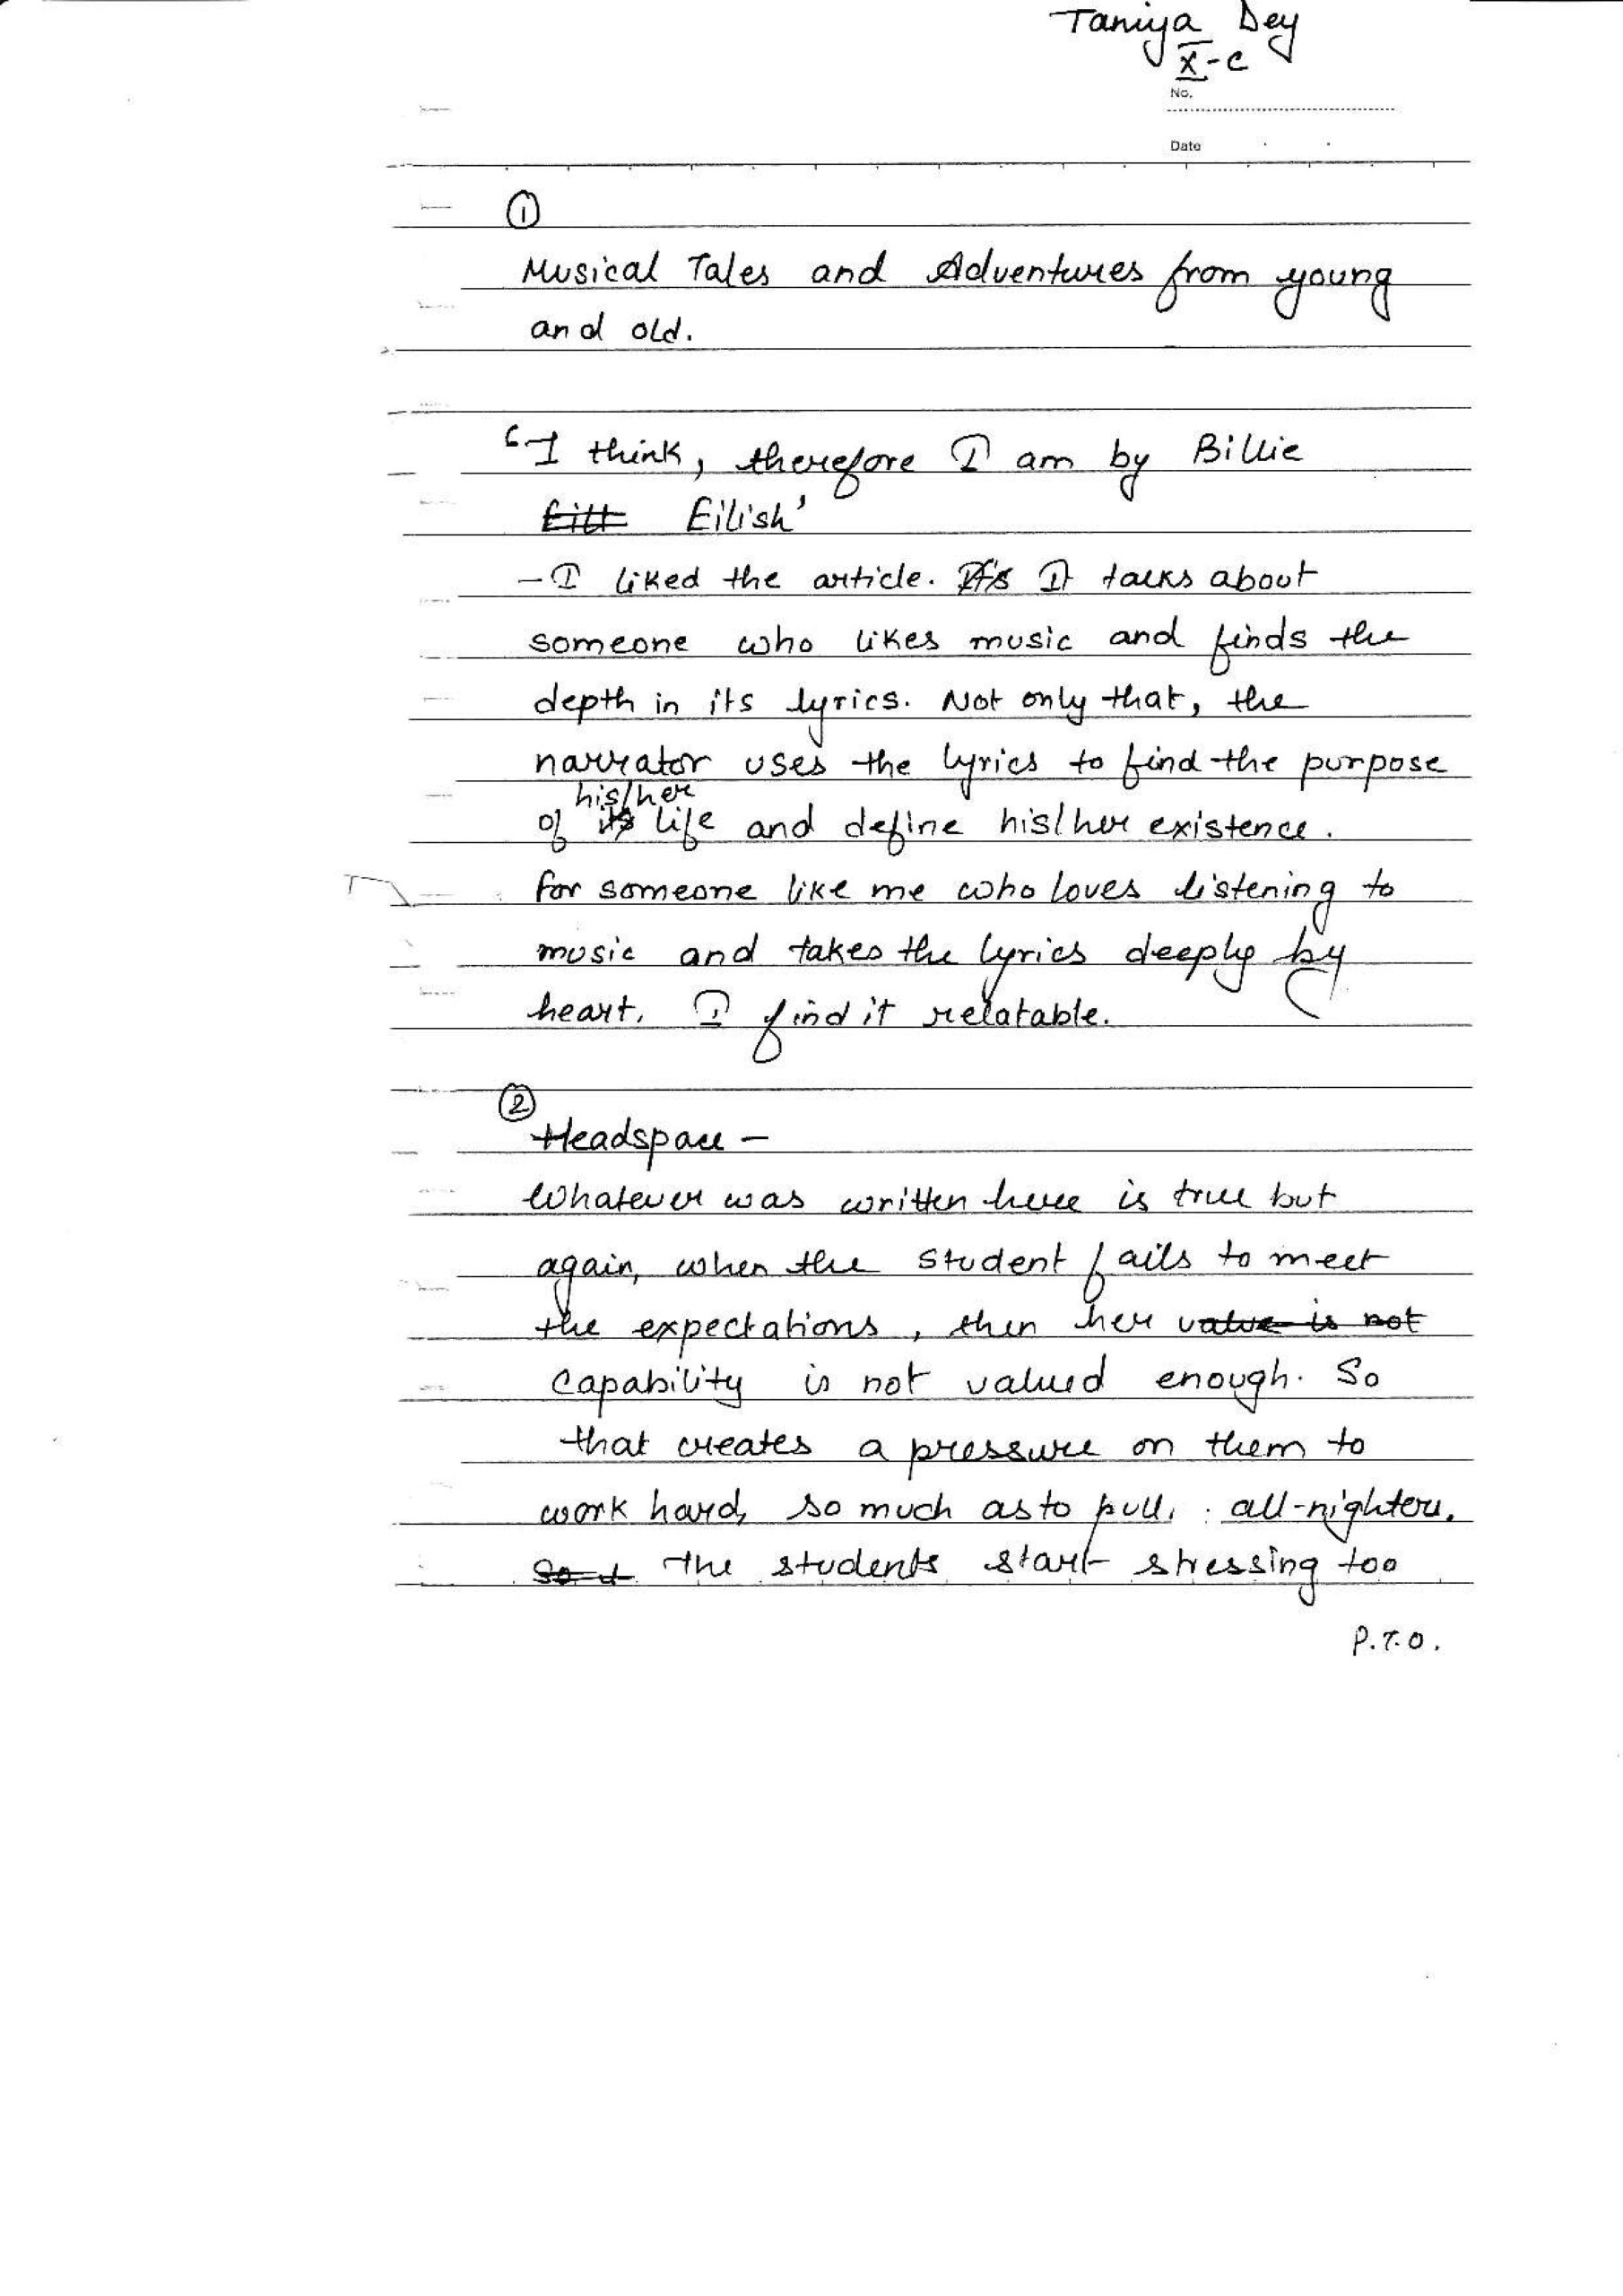 Taniya Dey
X-C
No.
Date
①
Musical Tales and Adventures from young
and old.
'I think, therefore I am by Billie
Eilish'
- I liked the article. It talks about
someone who likes music and finds the
depth in its lyrics. Not only that, the
narrator uses the lyrics to find the purpose
his/her
of life and define his/her existence.
for someone like me who loves listening to
music and takes the lyrics deeply by
heart. I find it relatable.
②
Headspace -
Whatever was written here is true but
again, when the student fails to meet
the expectations, then her value is not
capability is not valued enough. So
that creates a pressure on them to
work hard, so much as to pull all-nighters.
The students start stressing too
P.T.O.